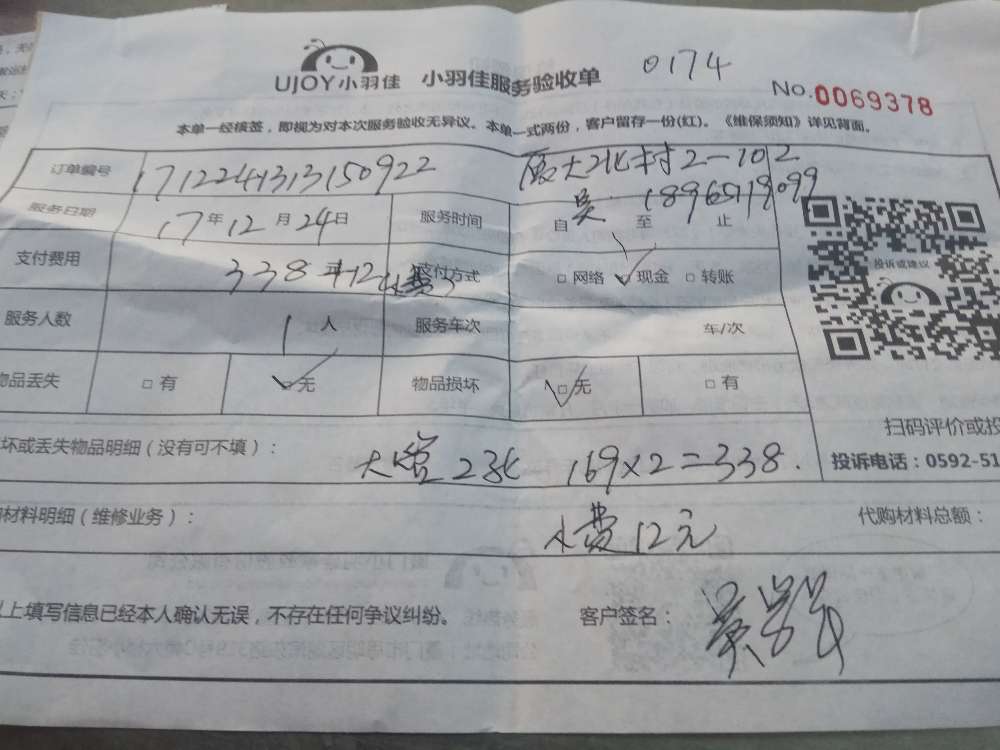 UJOY小羽佳 小羽佳服务验收单 0174
No.0069378
本单一经核签，即视为对本次服务验收无异议。本单一式两份，客户留存一份(红)。《维保须知》详见背面。
订单编号 1712241313150922 厦大北村2-102
吴 18965719099
服务日期 17年12月24日 服务时间 自 至 止
支付费用 338+12水费 支付方式 □网络 ☑现金 □转账
投诉或建议
服务人数 1人 服务车次 车/次
物品丢失 □有 ☑无 物品损坏 ☑无 □有
扫码评价或投
坏或丢失物品明细（没有可不填）： 169×2=338.
投诉电话：0592-51
材料明细（维修业务）： 水费12元 代购材料总额：
上填写信息已经本人确认无误，不存在任何争议纠纷。 客户签名：